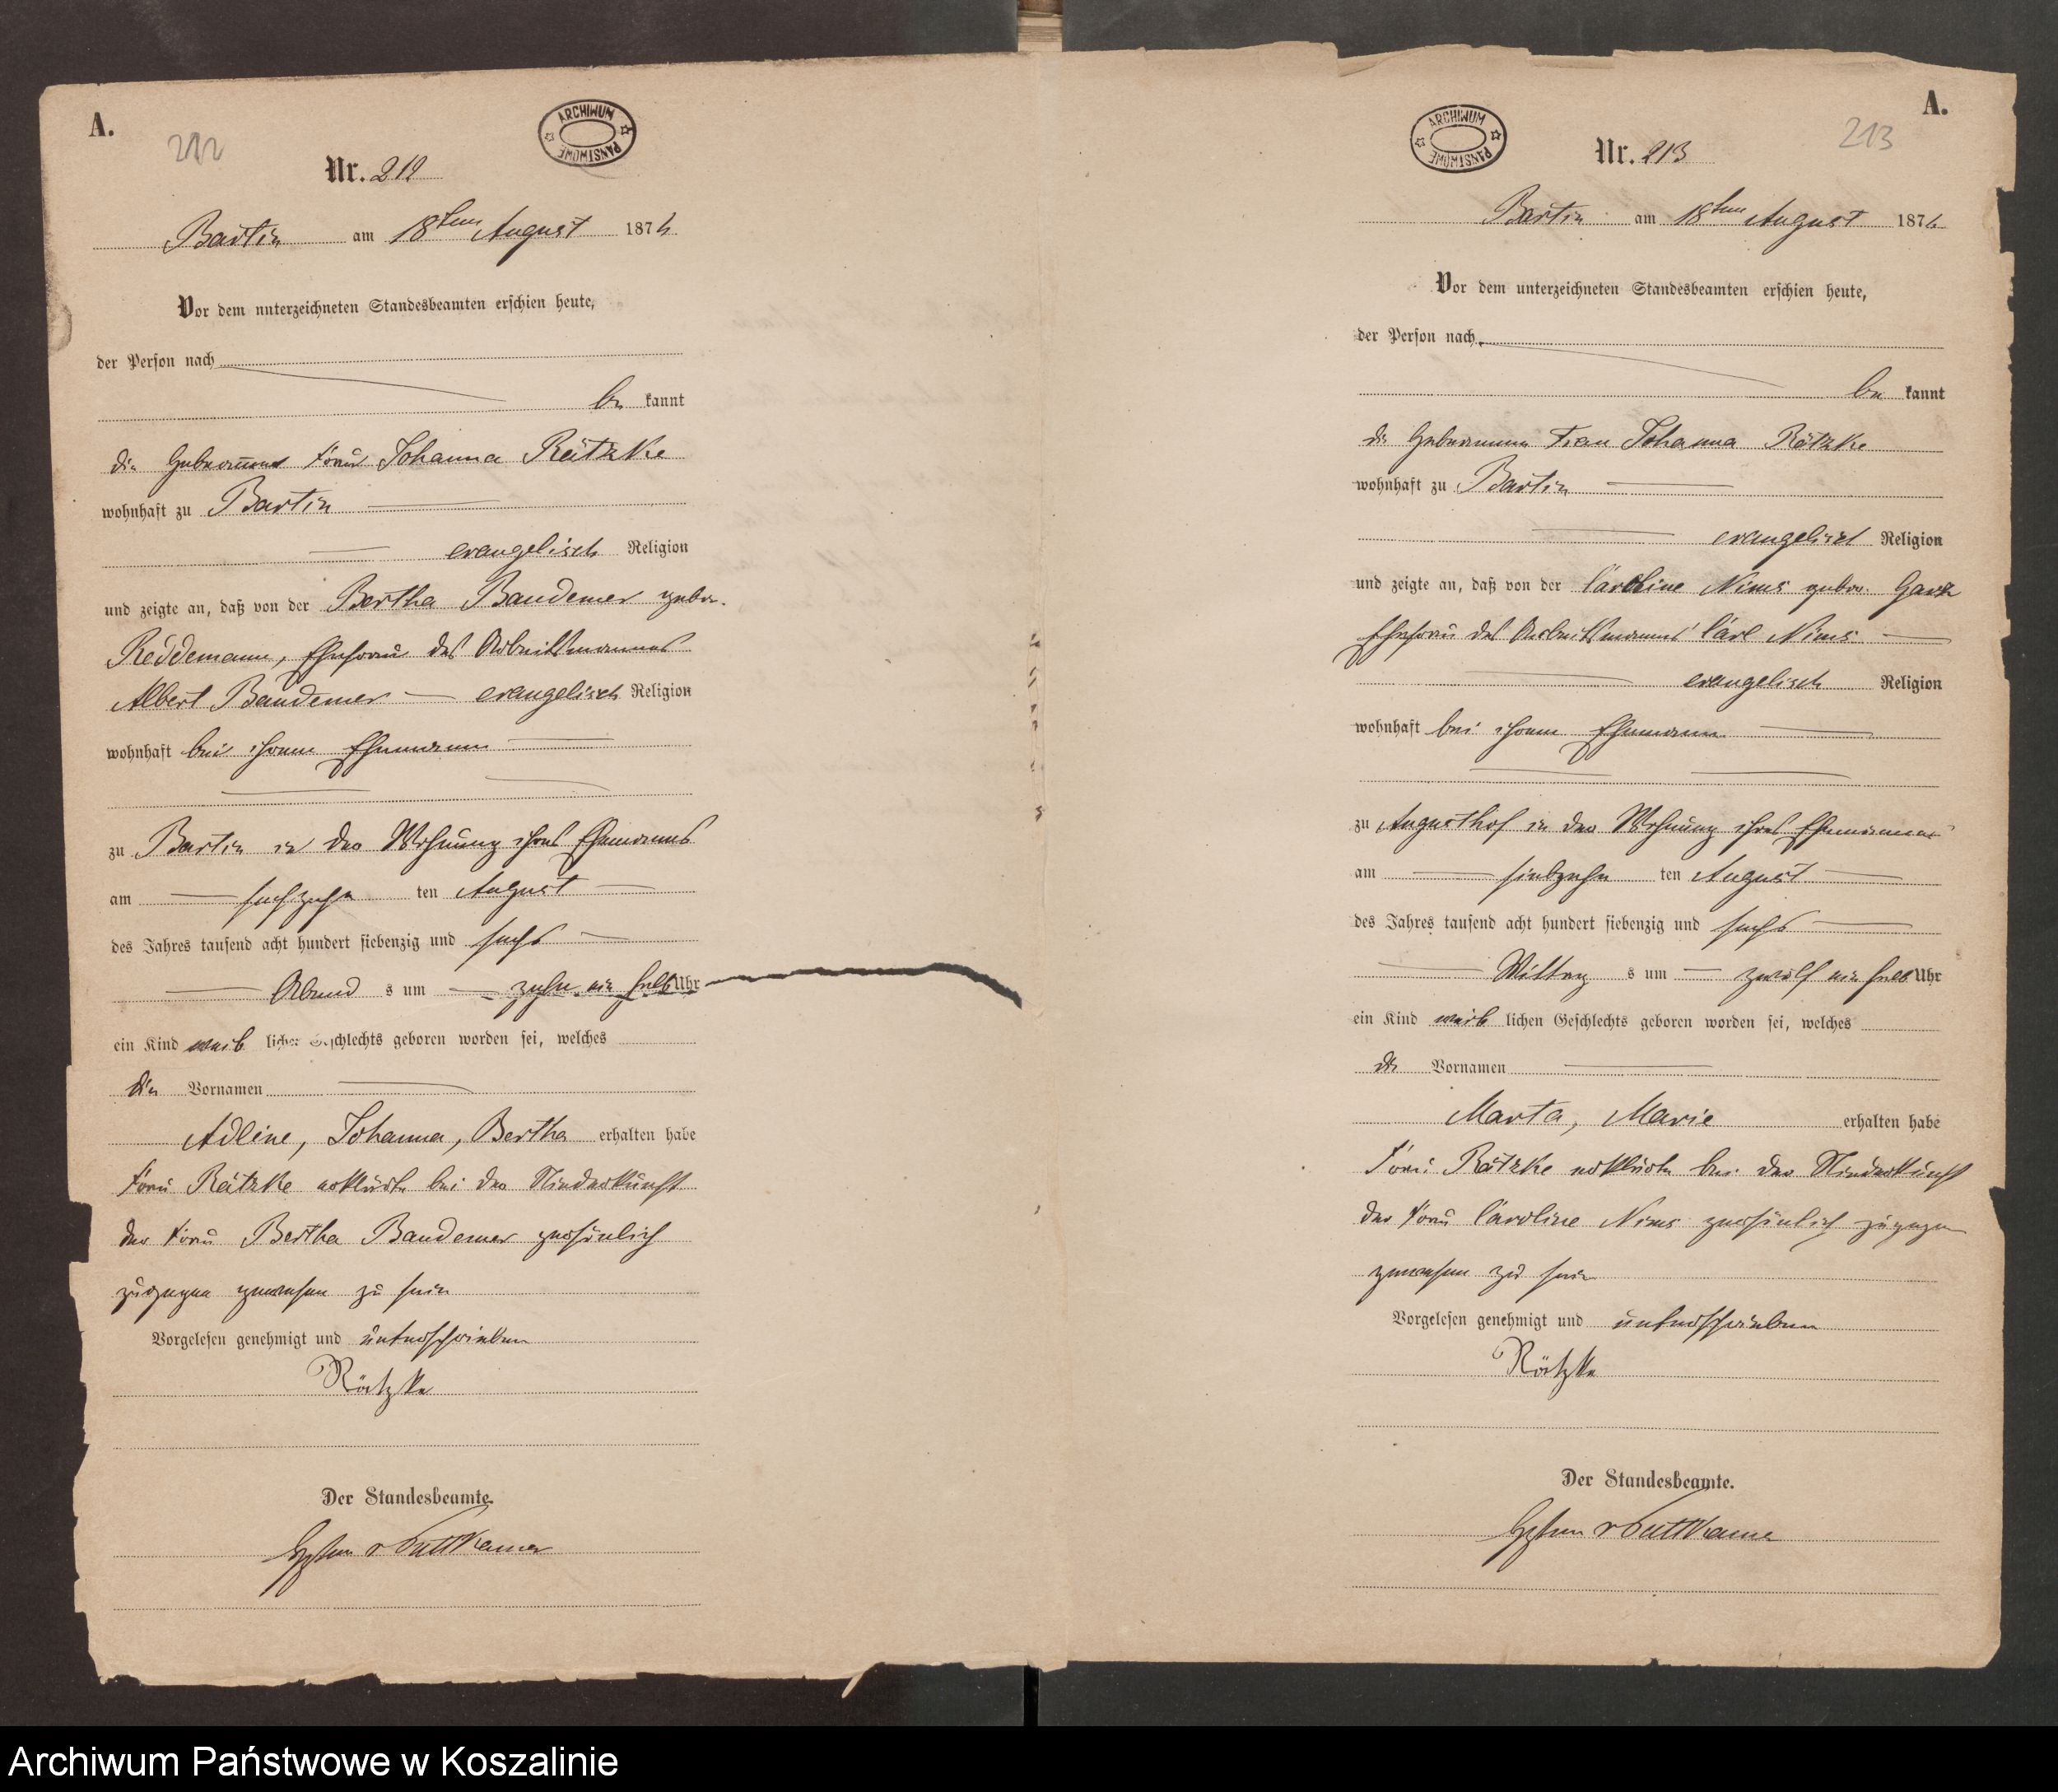 A.
212
ARCHIWUM PAŃSTWOWE
Nr. 212
Bartin am 18ten August 1876
Vor dem unterzeichneten Standesbeamten erschien heute,
der Person nach
be kannt
die Hebeamme Frau Johanna Rätzke
wohnhaft zu Bartin
evangelisch Religion
und zeigte an, daß von der Bertha Bandemer gebor.
Reddemann, Ehefrau des Arbeitsmannes
Albert Bandemer evangelisch Religion
wohnhaft bei ihrem Ehemann
zu Bartin in der Wohnung ihres Ehemanns
am sechzehn ten August
des Jahres tausend acht hundert siebenzig und sechs
Abend s um zehn ein halb Uhr
ein Kind weib lichen Geschlechts geboren worden sei, welches
die Vornamen
Adline, Johanna, Bertha erhalten habe
Frau Rätzke erklärte bei der Niederkunft
der Frau Bertha Bandemer persönlich
zugegen gewesen zu sein
Vorgelesen genehmigt und unterschrieben
Rätzke
Der Standesbeamte.
v Puttkamer
A.
213
ARCHIWUM PAŃSTWOWE
Nr. 213
Bartin am 18ten August 1876
Vor dem unterzeichneten Standesbeamten erschien heute,
der Person nach
be kannt
die Hebeamme Frau Johanna Rätzke
wohnhaft zu Bartin
evangelisch Religion
und zeigte an, daß von der Caroline Nims gebor. Garz
Ehefrau des Arbeitsmannes Carl Nims
evangelisch Religion
wohnhaft bei ihrem Ehemann
zu Augusthof in der Wohnung ihres Ehemannes
am siebzehn ten August
des Jahres tausend acht hundert siebenzig und sechs
Mittag s um zwölf ein halb Uhr
ein Kind weib lichen Geschlechts geboren worden sei, welches
die Vornamen
Marta, Marie erhalten habe
Frau Rätzke erklärte bei der Niederkunft
der Frau Caroline Nims persönlich zugegen
gewesen zu sein
Vorgelesen genehmigt und unterschrieben
Rätzke
Der Standesbeamte.
v Puttkamer
Archiwum Państwowe w Koszalinie